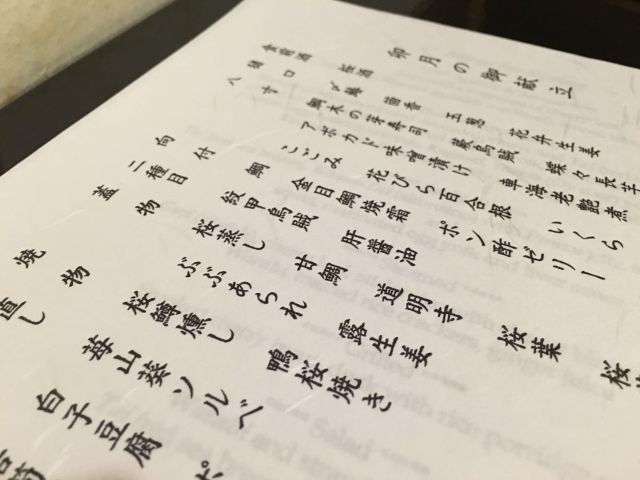 卯月の御献立
食前酒 桜酒
猪口 〆鯵 茴香 玉葱 花弁生姜
八寸 鯛木の芽寿司 蕨烏賊 蝶々長芋
アボカド味噌漬け 車海老艶煮
こごみ 花びら百合根 いくら
向付 鯛 金目鯛焼霜 ポン酢ゼリー
二種目 紋甲烏賊 肝醤油
蓋物 桜蒸し 甘鯛 道明寺 桜葉
ぶぶあられ 露生姜
焼物 桜鱒燻し 鴨桜焼き
直し 苺山葵ソルベ
白子豆腐